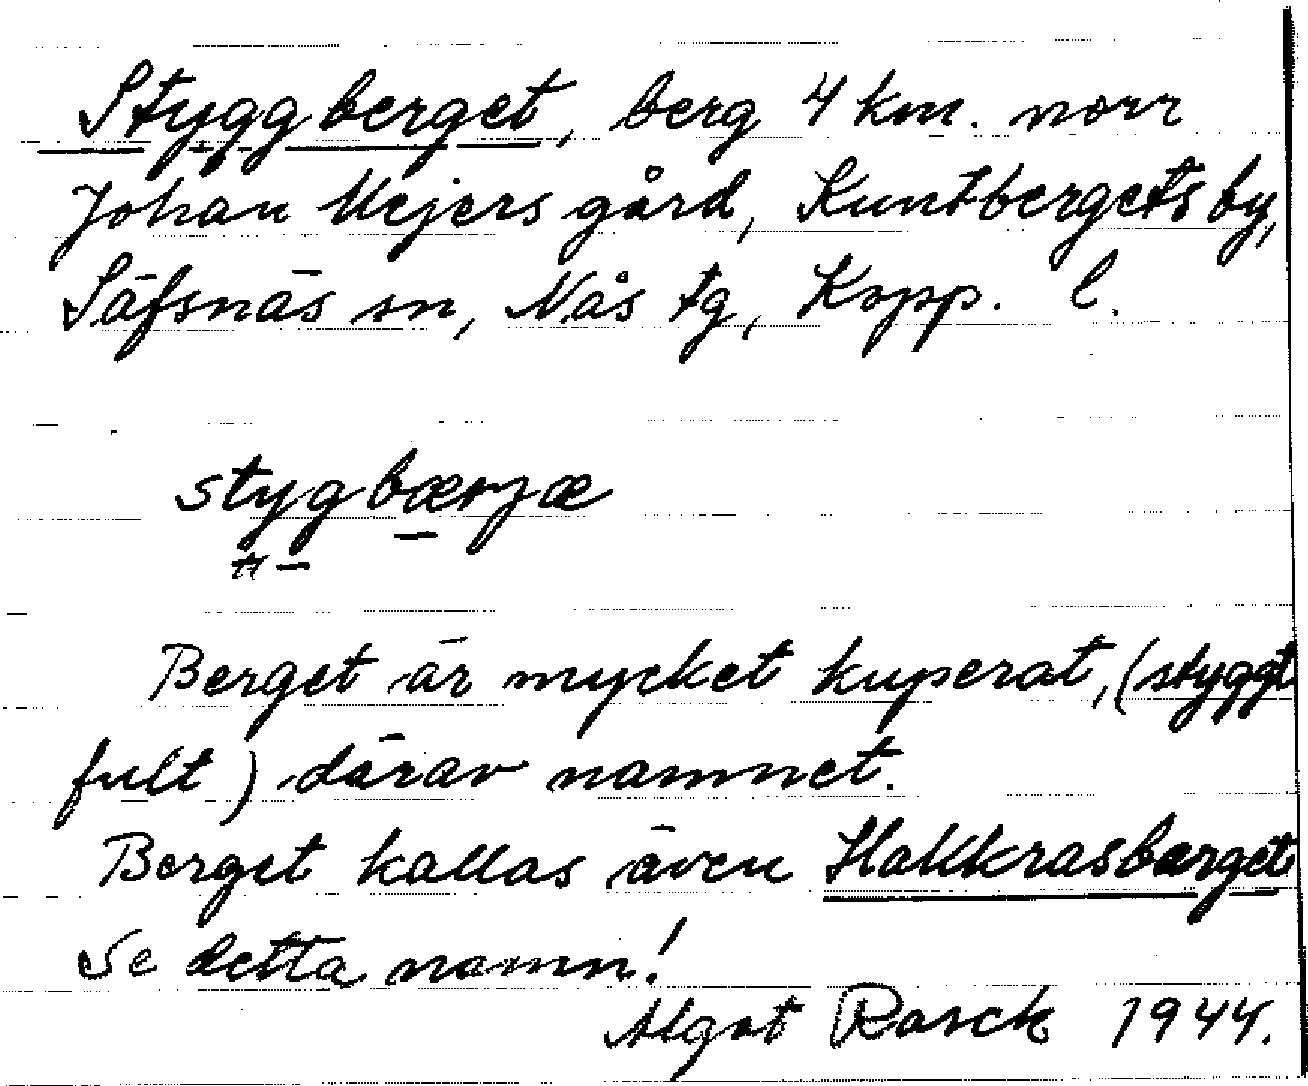 Styggberget, berg 4 km. norr
Johan Mejers gård, Kuntbergets by,
Säfsnäs sn, Nås tg, Kopp. l.
stygbærjæ
Berget är mycket kuperat, (styggt
fult) därav namnet.
Berget kallas även Hakkrasberget
Se detta namn!
Algot Rasck 1944.